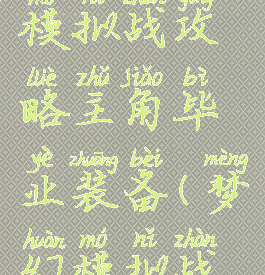 mó nǐ zhàn gōng
模拟战攻
lüè zhǔ jiǎo bì
略主角毕
yè zhuāng bèi mèng
业装备(梦
huàn mó nǐ zhàn
幻模拟战